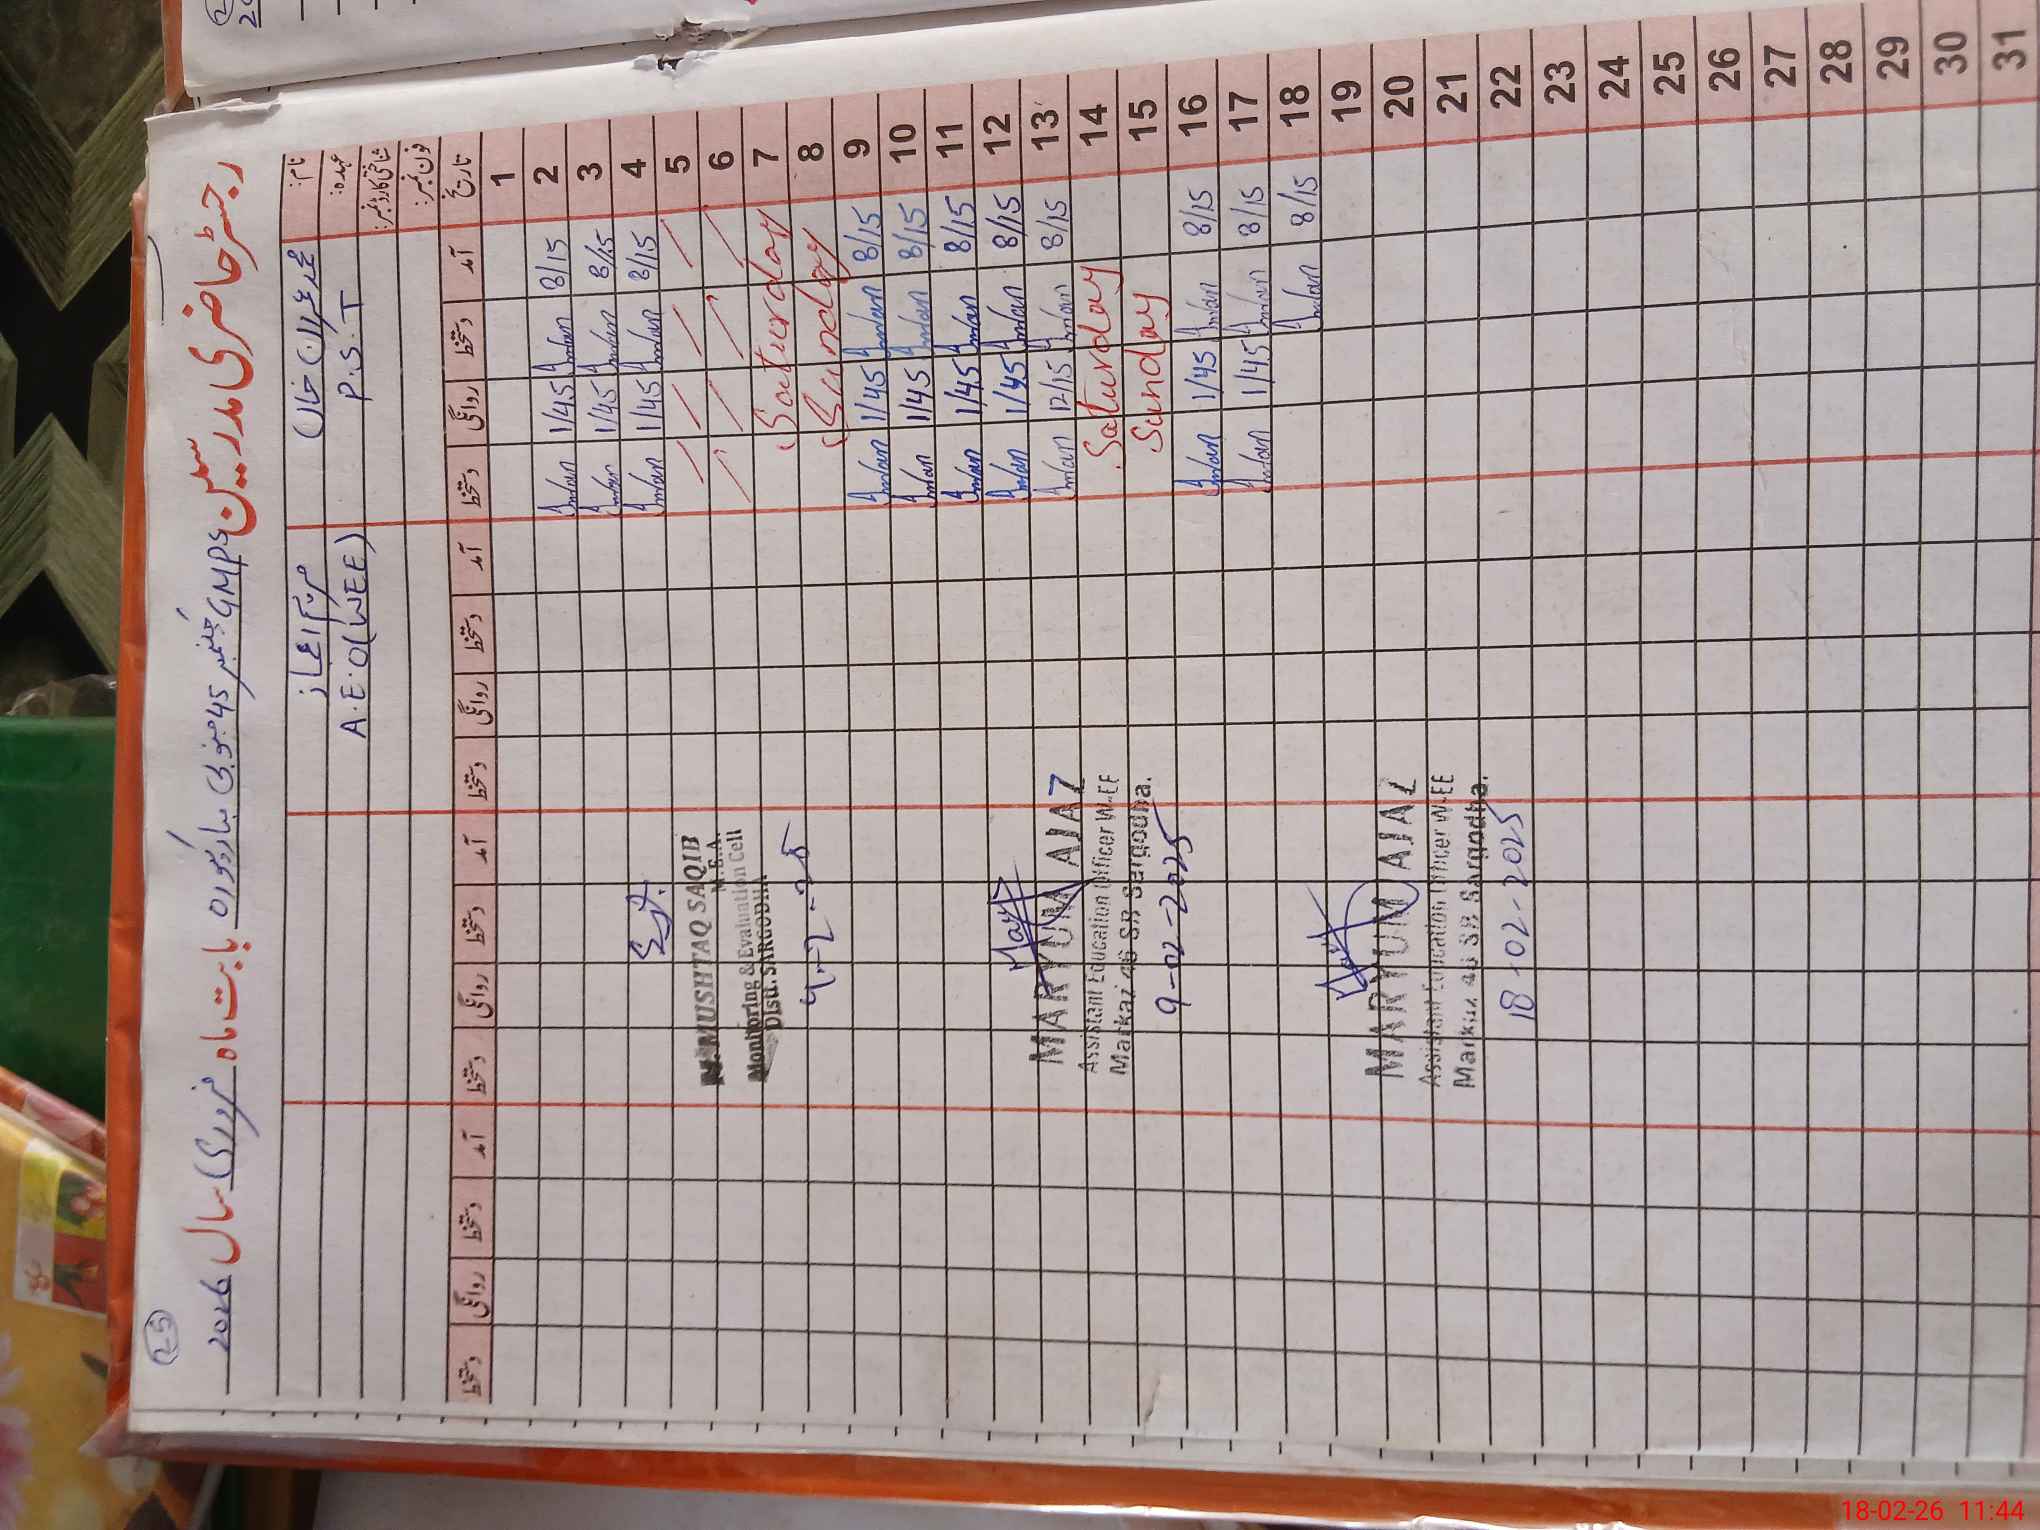 رجسٹر حاضری مدرسین GMPS چک نمبر 45 جنوبی بابت ماہ فروری سال 2026
نام: محمد عمران خان
مریم اعجاز
عہدہ: P.S.T
A.E.O(WEE)
شناختی کارڈ نمبر:
فون نمبر:
تاریخ آمد دستخط روانگی دستخط آمد دستخط روانگی دستخط آمد دستخط روانگی دستخط آمد دستخط روانگی دستخط
1
2 8/15 Imran 1/45 Imran
3 8/15 Imran 1/45 Imran
4 8/15 Imran 1/45 Imran
5
6
7 Saturday
8 Sunday
9 8/15 Imran 1/45 Imran
10 8/15 Imran 1/45 Imran
11 8/15 Imran 1/45 Imran
12 8/15 Imran 1/45 Imran
13 8/15 Imran 12/15 Imran
14 Saturday
15 Sunday
16 8/15 Imran 1/45 Imran
17 8/15 Imran 1/45 Imran
18 8/15 Imran
19
20
21
22
23
24
25
26
27
28
29
30
31
M. MUSHTAQ SAQIB
M.E.A.
Monitoring & Evaluation Cell
Distt. SARGODHA
MARYUM AIAZ
Assistant Education Officer W-EE
Markaz 46 SB Sargodha.
9-02-2025
MARYUM AIAZ
Assistant Education Officer W-EE
Markaz 46 SB Sargodha.
18-02-2025
18-02-26 11:44